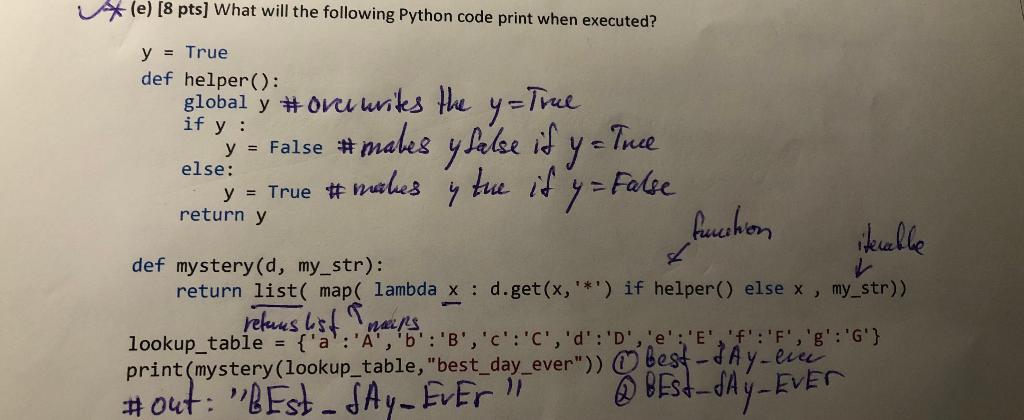 (e) [8 pts] What will the following Python code print when executed?
y = True
def helper():
global y # overwrites the y = True
if y :
y = False # makes y false if y = True
else:
y = True # makes y true if y = False
return y
function
iterable
def mystery(d, my_str):
return list( map( lambda x : d.get(x,'*') if helper() else x , my_str))
returns list maps
lookup_table = {'a':'A','b':'B','c':'C','d':'D','e':'E','f':'F','g':'G'}
print(mystery(lookup_table,"best_day_ever")) ① best_dAy_ever
② BEst_dAy_EvEr
# out: "BEst_dAy_EvEr"